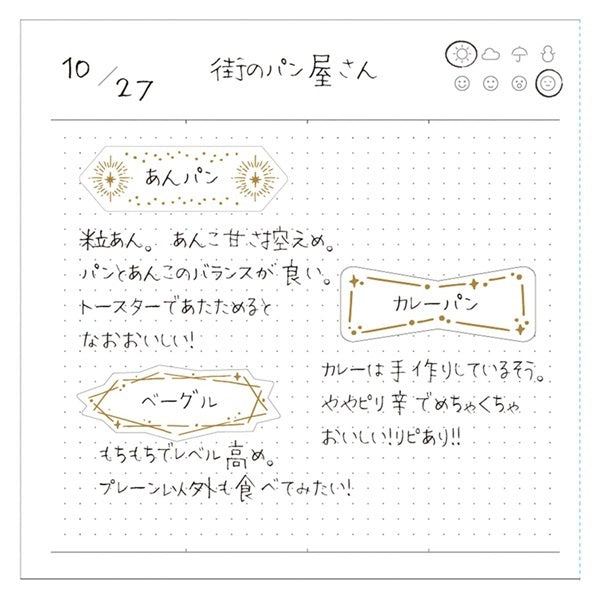 10/27
街のパン屋さん
あんパン
粒あん。あんこ甘さは控えめ。
パンとあんこのバランスが良い。
トースターであたためると
なおおいしい!
カレーパン
カレーは手作りしているそう。
ややピリ辛でめちゃくちゃ
おいしい!リピあり!!
ベーグル
もちもちでレベル高め。
プレーン以外も食べてみたい!